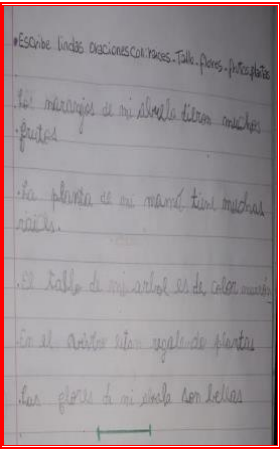 •Escribe lindas oraciones con: raíces - Tallo - flores - frutos, plantas
•Los naranjos de mi abuela dieron muchos
frutos
•La planta de mi mamá tiene muchas
raíces.
•El tallo de mi arbol es de color marrón
•En el están regalo de plantas
•Las flores de mi son bellas